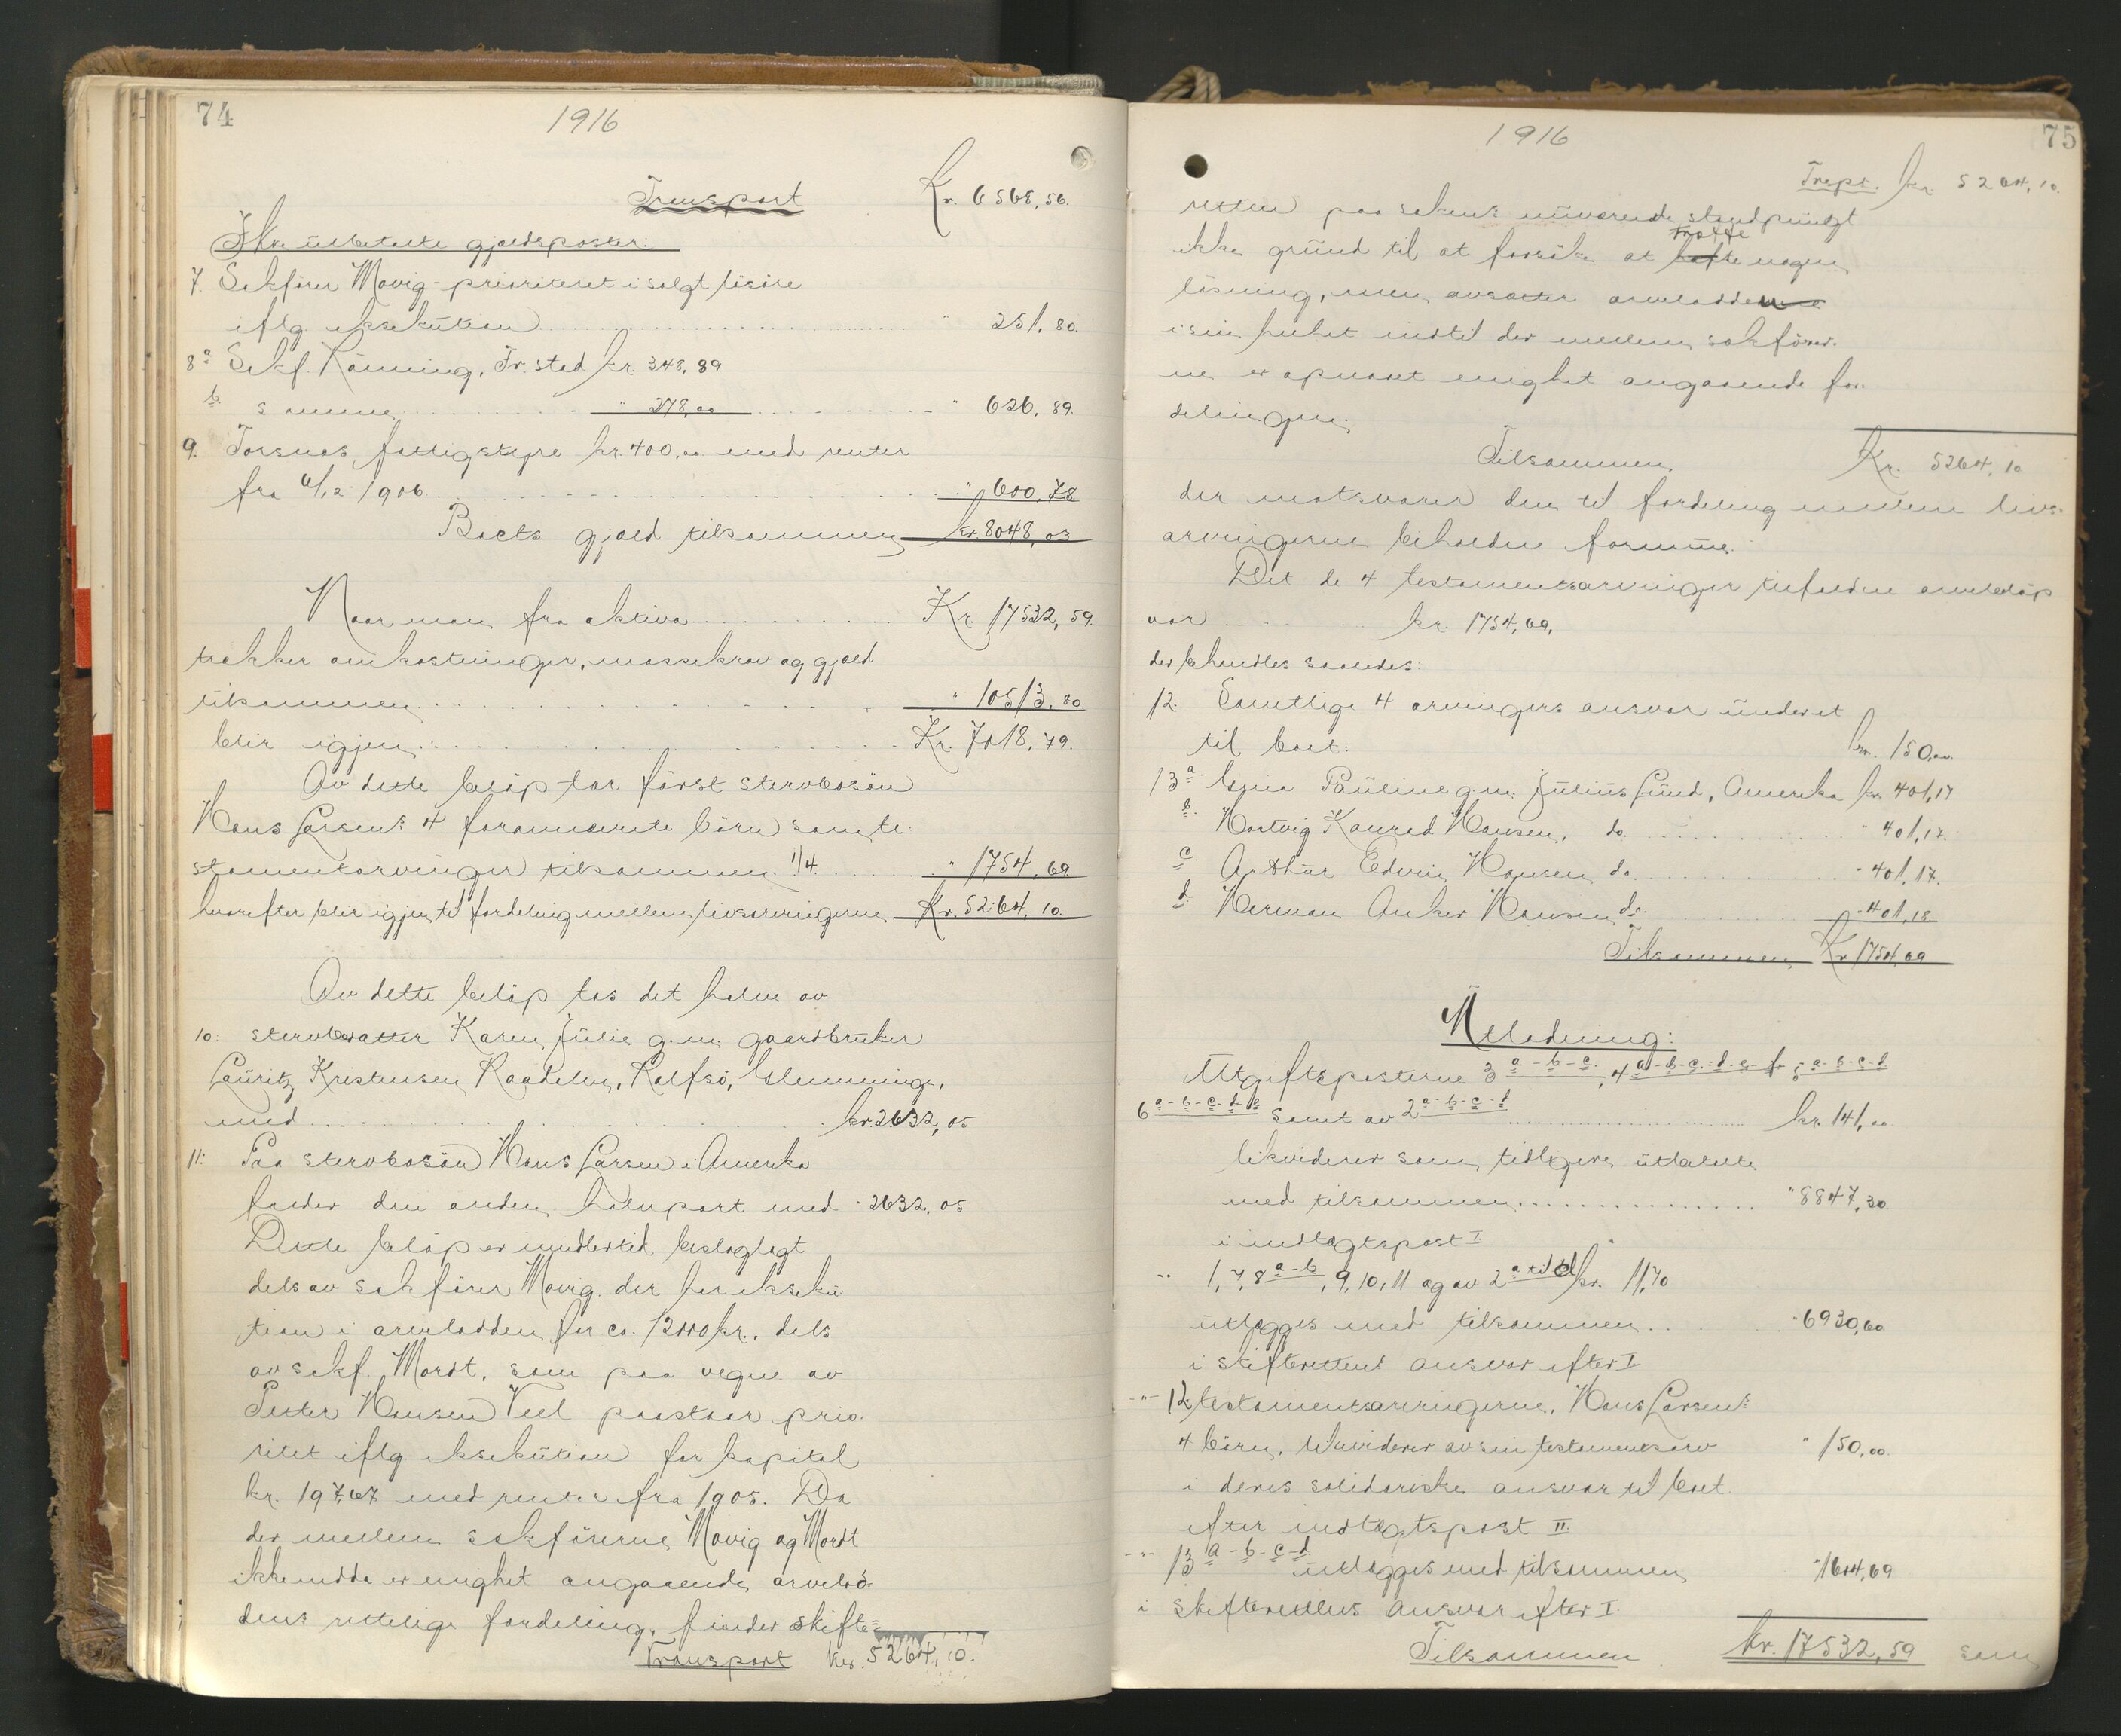 74
1916
Transport Kr. 6568,56.
Ikke utbetalte gjældsposter:
7. Sakfører Møvig - prioritert i solgt løsøre
iflg. eksekution " 251,80.
8a Sakf. Rönning, Fr.sted kr. 348,89
b. samme " 278,00 " 626,89.
9. Torsnæs fattigstyre kr. 400,00 med renter
fra 6/12 1906 " 600,78
Boets gjæld tilsammen kr. 8048,03
Naar man fra aktiva Kr. 17532,59.
trækker omkostninger, massekrav og gjæld
tilsammen " 10513,80
blir igjen: Kr. 7018,79.
Av dette beløp tar först stervbosøn
Hans Larsens 4 forannævnte börn som te-
stamentarvinger tilsammen 1/4 " 1754,69
hvorefter blir igjen til fordeling mellem livsarvingerne Kr. 5264,10.
Av dette beløp tas det halve av
10. stervbodatter Karen Julie g.m. gaardbruker
Lauritz Kristensen Raadalen, Rolfsö, Glemminge,
med kr. 2632,05
11: Paa stervbosön Hans Larsen i Amerika
falder den anden halvpart med " 2632,05
Dette beløp er imidlertid beslaglagt
dels av sakfører Møvig, der har ekseku-
tion i arvelodden for ca. 12000 kr., dels
av sakf. Mordt, som paa vegne av
Petter Hansen Veel paastaar prio-
ritet iflg. eksekution for kapital
kr. 197,67 med renter fra 1905. Da
der mellem sakførerne Møvig og Mordt
ikke endda er enighet angaaende arvelod-
dens rettelige fordeling, finder skifte=
Transport kr. 5264,10.
1916
75
Trspt. kr. 5264,10.
retten paa sakens nuværende standpunkt
træffe
ikke grund til at forsøke at nogen
løsning, men avsætter arvelodden
i sin helhet indtil der mellem sakfører-
ne er opnaaet enighet angaaende for-
delingen.
Tilsammen Kr. 5264,10
der motsvarer den til fordeling mellem livs-
arvingerne beholdne formue.
Det de 4 testamentsarvinger tilfaldne arvebeløp
var kr. 1754,69,
der behandles saaledes:
12. Samtlige 4 arvingers ansvar under et
til boet: kr. 150,00.
13a. Gina Pauline g.m. Julius Lund, Amerika kr. 401,17
b. Hartvig Konrad Hansen, do. " 401,17.
c. Arthur Edvin Hansen do. " 401,17.
d Herman Anker Hansen do. " 401,18
Tilsammen Kr 1754,69
Utlodning:
Utgiftsposterne 3 a-b-c., 4 a-b-c-d-e-f, 5 a-b-c-d
6 a-b-c-d-e samt av 2 a-b-c-d kr. 141,00
likviderer som tidligere utbetalte
med tilsammen " 8847,30
i indtægtspost I
" 1, 7, 8 a-b, 9, 10, 11 og av 2 a til d kr. 11,70
utlægges med tilsammen " 6930,60
i skifterettens ansvar efter I
-"- 12 testamentsarvingerne, Hans Larsens
4 börn, likviderer av sin testamentsarv " 150,00.
i deres solidariske ansvar til boet
efter indtægtspost II.
-"- 13 a-b-c-d utlægges med tilsammen " 1604,69
i skifterettens ansvar efter I
Tilsammen kr. 17532,59 som